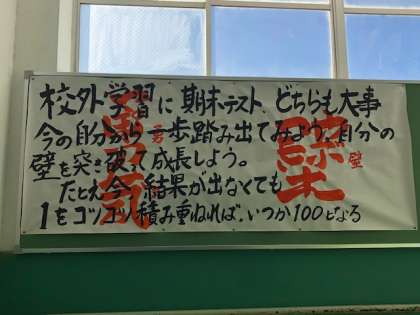 校外学習に期末テスト、どちらも大事
今の自分から一歩踏み出てみよう。自分の
壁を突き破って成長しよう。
たとえ今、結果が出なくても
1をコツコツ積み重ねれば、いつか100となる
勇気
壁